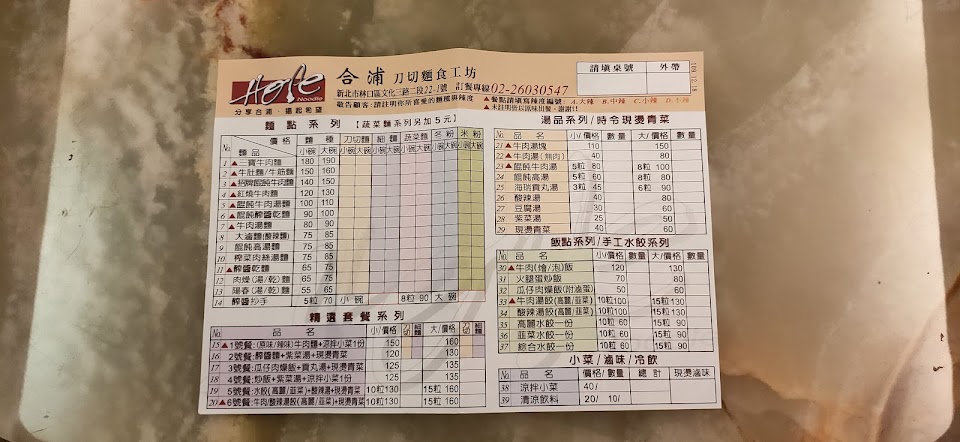 Hope
Noodle
分享合浦．擁抱希望
合浦 刀切麵食工坊
新北市林口區文化三路二段22-1號 訂餐專線02-26030547
敬告顧客:請註明你所喜愛的麵種與辣度
請填桌號 外帶
109.12.18
▲餐點請填寫辣度編號: A.大辣 B.中辣 C.小辣 D.不辣
麵點系列 【蔬菜麵系列另加5元】
No. 價格 麵種 刀切麵 細麵 蔬菜麵 冬粉 米粉
麵品 小碗 大碗 小碗 大碗 小碗 大碗 小碗 大碗 小碗 大碗 小碗 大碗
1 ▲三寶牛肉麵 180 190
2 ▲牛肚麵/牛筋麵 150 160
3 ▲招牌餛飩牛肉麵 140 150
4 ▲紅燒牛肉麵 120 130
5 ▲餛飩牛肉湯麵 100 110
6 ▲餛飩醇醬乾麵 90 100
7 ▲牛肉湯麵 80 90
8 大滷麵(酸辣麵) 75 85
9 餛飩高湯麵 75 85
10 榨菜肉絲湯麵 75 85
11 ▲醇醬乾麵 65 75
12 肉燥(湯/乾)麵 65 75
13 陽春(湯/乾)麵 55 65
14 醇醬抄手 5粒 70 小碗 8粒 90 大碗
精選套餐系列
No. 品名 小/價格 刀切 細麵 大/價格 刀切 細麵
15 ▲1號餐:(原味/辣味)牛肉麵+涼拌小菜1份 150 160
16 2號餐:醇醬麵+紫菜湯+現燙青菜 120 130
17 3號餐:瓜仔肉燥飯+貢丸湯+現燙青菜 125 135
18 4號餐:炒飯+紫菜湯+涼拌小菜1份 125 135
19 5號餐:水餃(高麗/韮菜)+酸辣湯+現燙青菜 10粒130 15粒 160
20 ▲6號餐:牛肉/酸辣湯餃(高麗/韮菜)+現燙青菜 10粒130 15粒 160
湯品系列/時令現燙青菜
No. 品名 小/價格 數量 大/價格 數量
21 ▲牛肉湯塊 110 150
22 ▲牛肉湯(無肉) 40 80
23 ▲餛飩牛肉湯 5粒 80 8粒 100
24 餛飩高湯 5粒 60 8粒 80
25 海瑞貢丸湯 3粒 45 6粒 90
26 酸辣湯 40 80
27 豆腐湯 30 60
28 紫菜湯 25 50
29 現燙青菜 40 60
飯點系列/手工水餃系列
No. 品名 小/價格 數量 大/價格 數量
30 ▲牛肉(燴/泡)飯 120 130
31 火腿蛋炒飯 70 80
32 瓜仔肉燥飯(附滷蛋) 50 60
33 ▲牛肉湯餃(高麗/韮菜) 10粒100 15粒 130
34 酸辣湯餃(高麗/韮菜) 10粒100 15粒 130
35 高麗水餃一份 10粒 60 15粒 90
36 韮菜水餃一份 10粒 60 15粒 90
37 綜合水餃一份 10粒 60 15粒 90
小菜/滷味/冷飲
No. 品名 價格/數量 總計 現燙滷味
38 涼拌小菜 40/
39 清涼飲料 20/ 10/